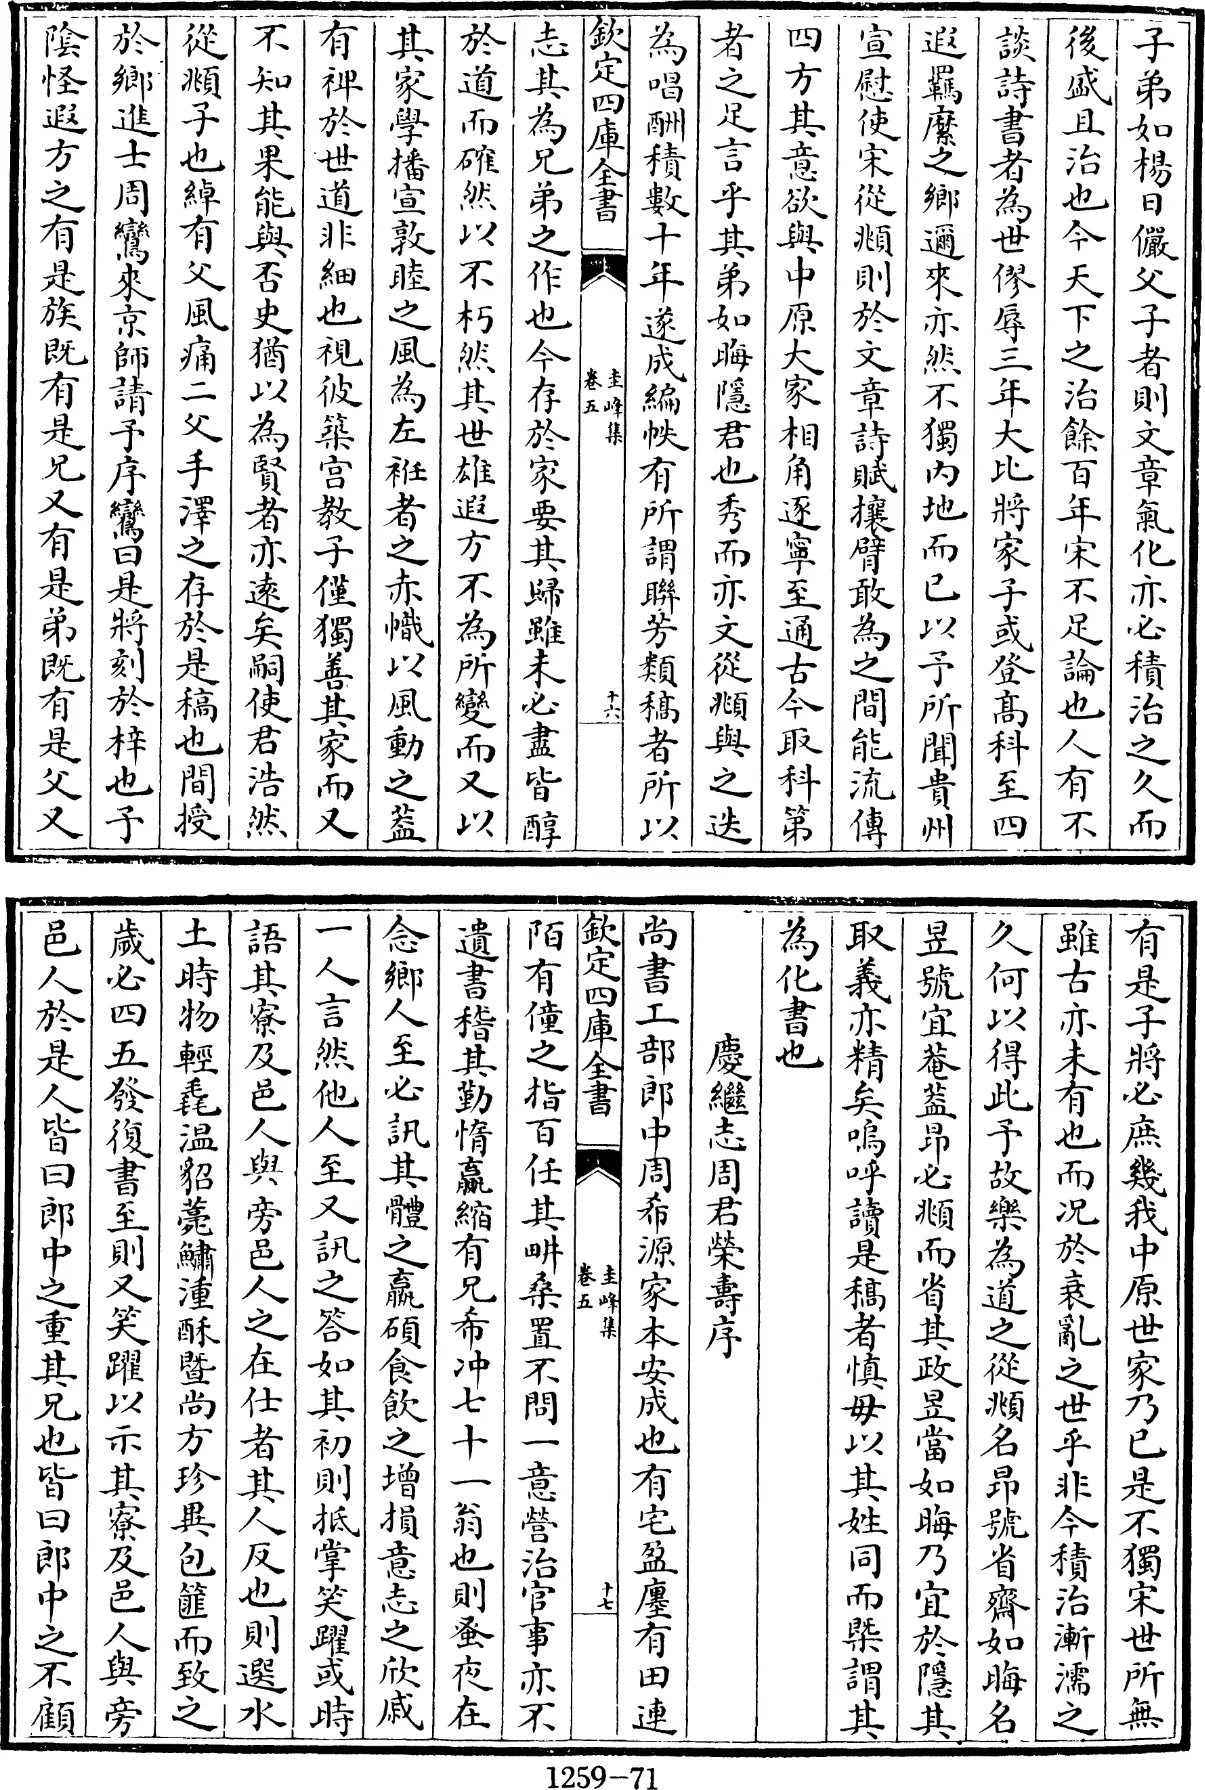 子弟如楊日儼父子者則文章氣化亦必積治之久而
後盛且治也今天下之治餘百年宋不足論也人有不
談詩書者為世僇辱三年大比將家子或登髙科至四
遐羈縻之鄉邇來亦然不獨内地而已以予所聞貴州
宣慰使宋從頫則於文章詩賦攘臂敢為之間能流傳
四方其意欲與中原大家相角逐寧至通古今取科第
者之足言乎其弟如晦隱君也秀而亦文從頫與之迭
為唱酬積數十年遂成編帙有所謂聯芳類稿者所以
欽定四庫全書
圭峰集
卷五
十六
志其為兄弟之作也今存於家要其歸雖未必盡皆醇
於道而確然以不朽然其世雄遐方不為所變而又以
其家學播宣敦睦之風為左袵者之赤幟以風動之葢
有裨於世道非細也視彼築宫教子僅獨善其家而又
不知其果能與否史猶以為賢者亦逺矣嗣使君浩然
從頫子也綽有父風痛二父手澤之存於是稿也間授
於鄉進士周鸞來京師請予序鸞曰是將刻於梓也予
陰怪遐方之有是族既有是兄又有是弟既有是父又
有是子將必庶幾我中原世家乃已是不獨宋世所無
雖古亦未有也而况於衰亂之世乎非今積治漸濡之
久何以得此予故樂為道之從頫名昻號省齋如晦名
昱號宜菴葢昻必頫而省其政昱當如晦乃宜於隱其
取義亦精矣嗚呼讀是稿者慎毋以其姓同而槩謂其
為化書也
慶繼志周君榮壽序
尚書工部郎中周希源家本安成也有宅盈廛有田連
欽定四庫全書
圭峰集
卷五
十七
陌有僮之指百任其畊桑置不問一意營治官事亦不
遺書稽其勤惰贏縮有兄希冲七十一翁也則蚤夜在
念鄉人至必訊其體之羸碩食飲之增損意志之欣戚
一人言然他人至又訊之答如其初則抵掌笑躍或時
語其寮及邑人與旁邑人之在仕者其人反也則選水
土時物輕毳温貂薧鱐湩酥暨尚方珍異包篚而致之
歲必四五發復書至則又笑躍以示其寮及邑人與旁
邑人於是人皆曰郎中之重其兄也皆曰郎中之不顧
1259-71